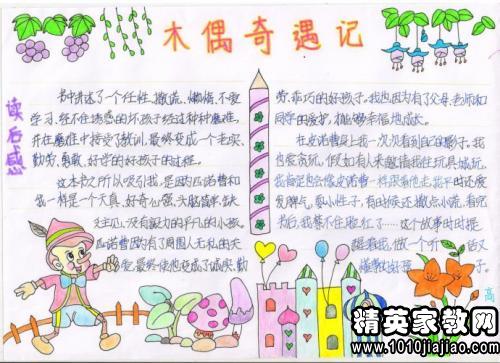 木偶奇遇记
读后感
书中讲述了一个任性、撒谎、懒惰、不爱
学习、经不住诱惑的坏孩子经过种种磨难,
并在磨难中接受了教训,最终变成一个老实、
勤劳、勇敢、好学的好孩子的过程。
这本书之所以吸引我,是因匹诺曹和
我一样是个天真、好奇心强、头脑简单、缺
主见、没有毅力的平凡的小孩。
匹诺曹因为有了周围人无私的关
爱,最终使他变成了诚实、勤
劳、乖巧的好孩子。我也因为有了父母、老师和
同学的爱护,才能够幸福地成长。
在皮诺曹身上我一次次看到自己的影子。我
也爱贪玩,假如有人来邀请我住玩具城玩,
我肯定也会像皮诺曹一样跟着他走。我平时还爱
发脾气,耍小性子,有时候还撒点小谎。看完
书后,我禁不住脸红了……这个故事时时提
醒着我,做一个
懂事的好孩子。
高
精英家教网
www.1010jiajiao.com